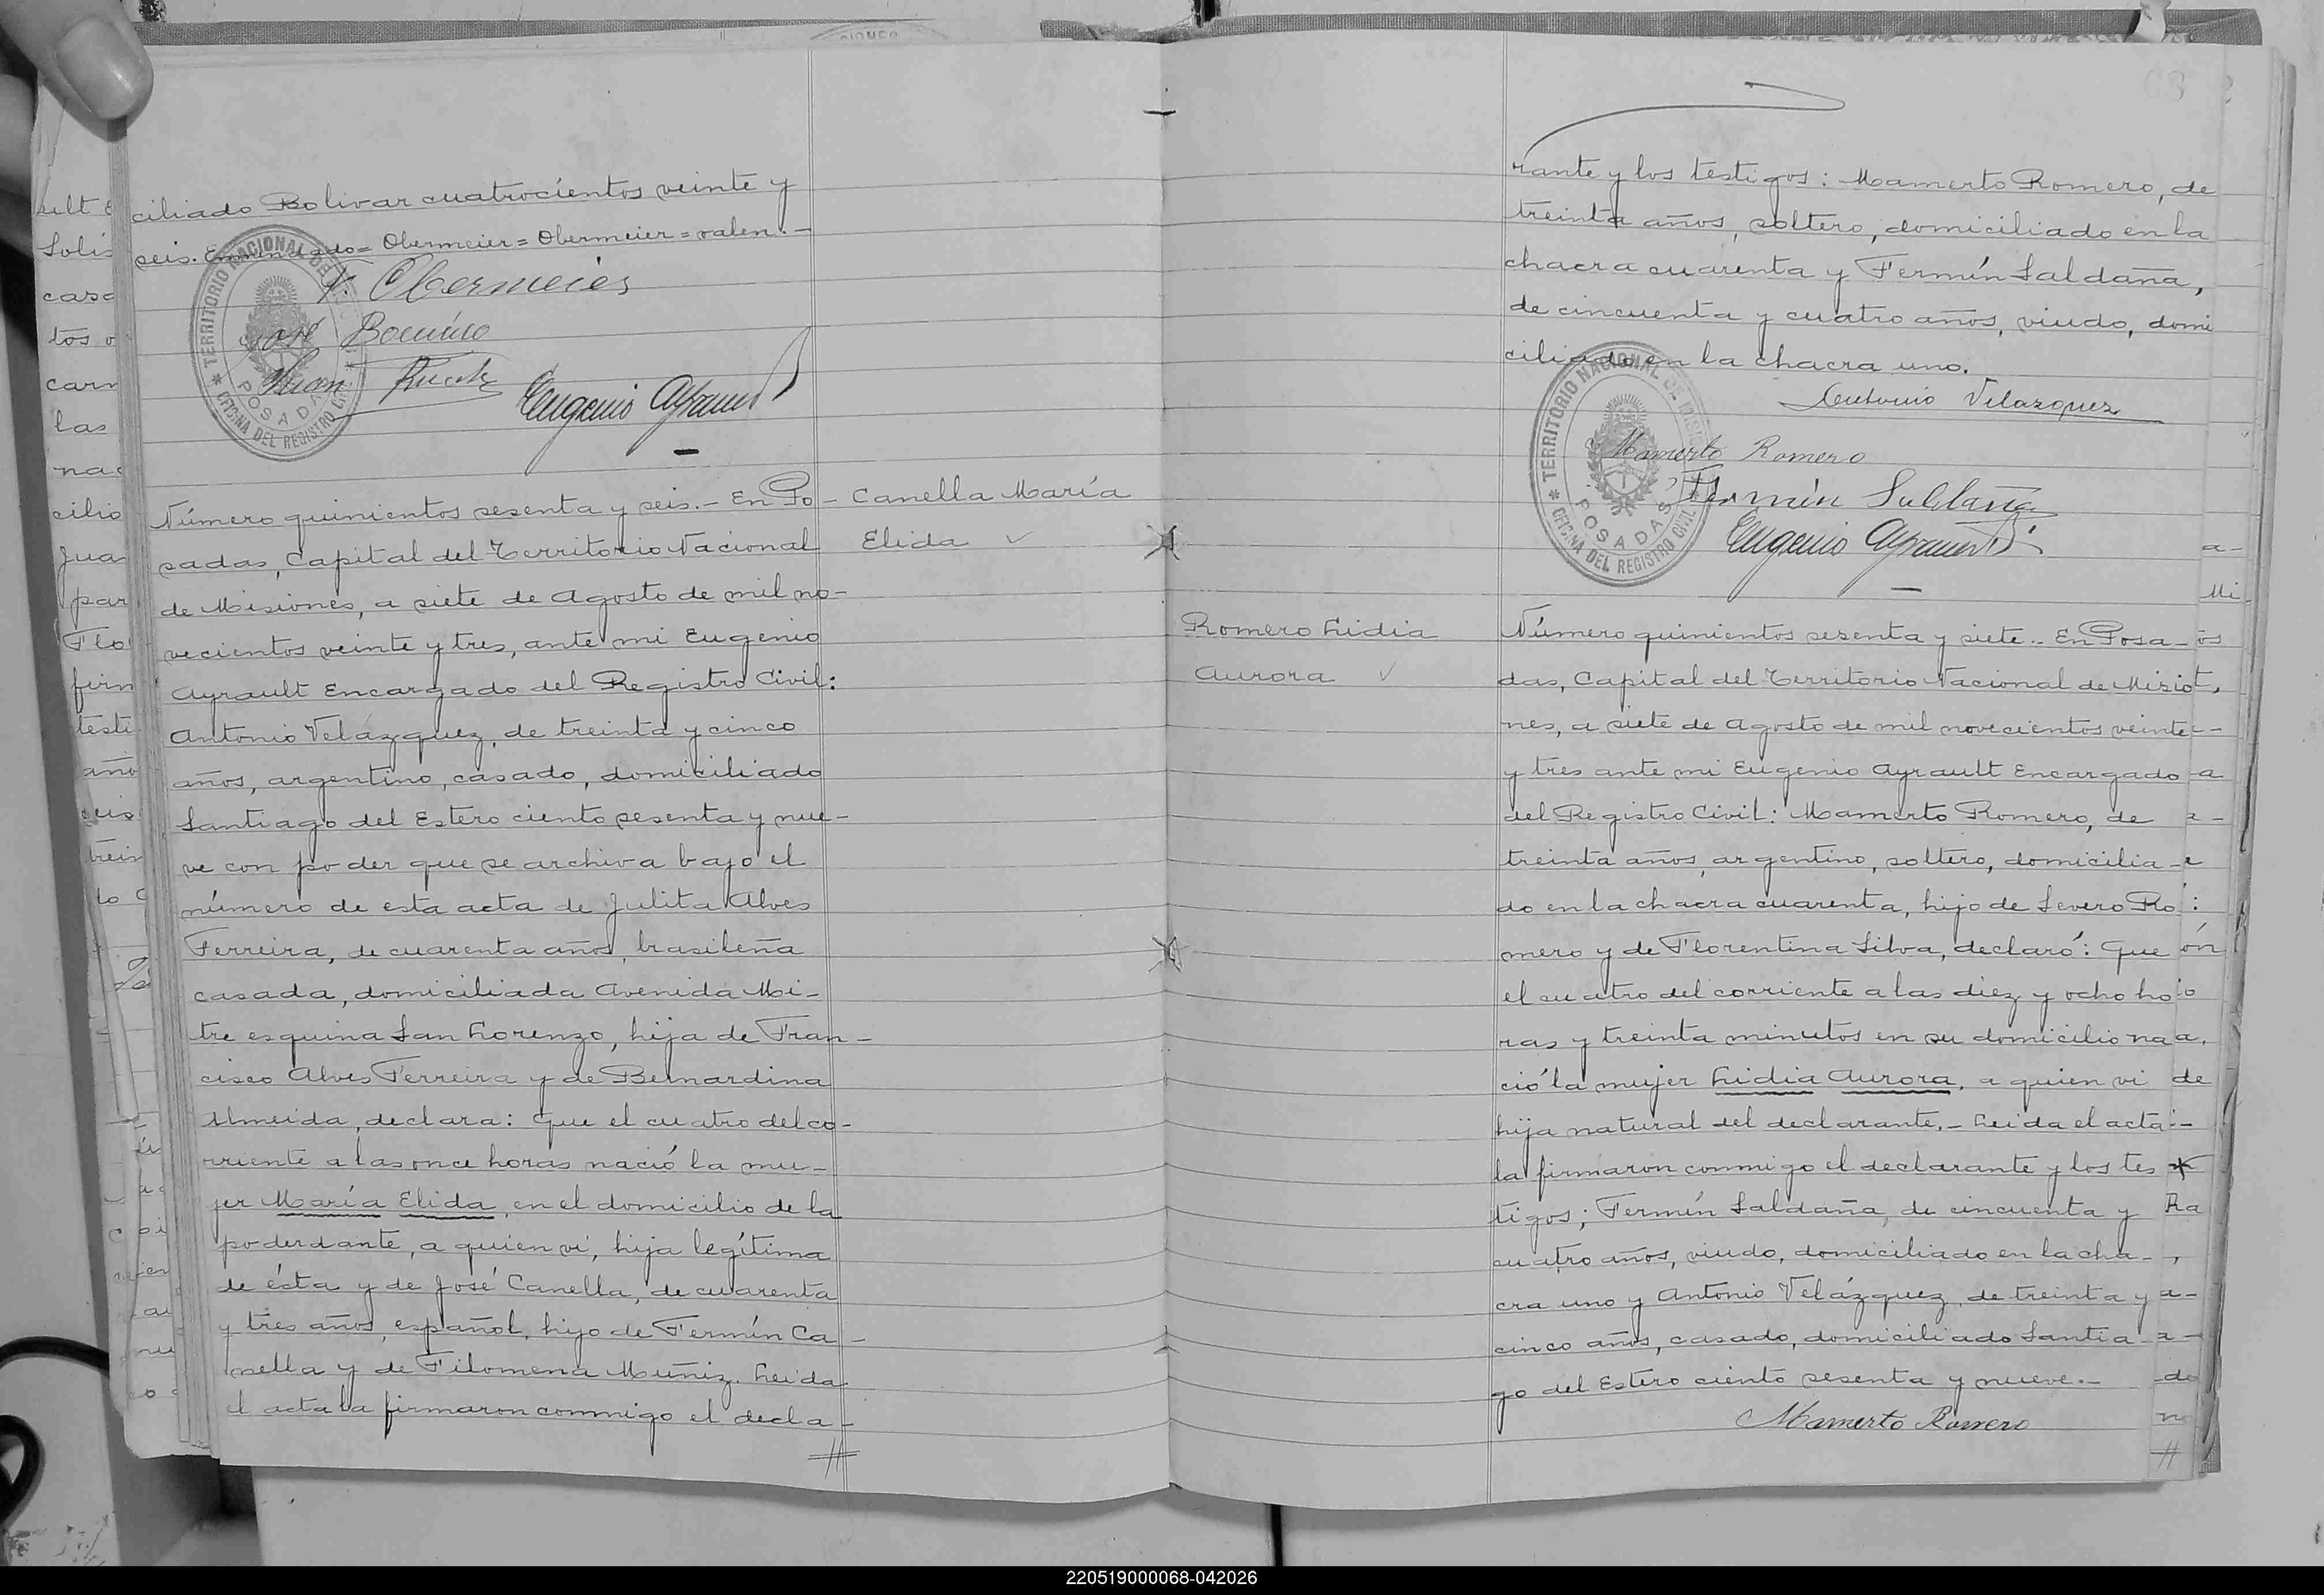 ciliado Bolivar cuatrocientos veinte y
seis. Enmendado= Obermeier= Obermeier= valen.-
F. Obermeier
José
Juan
Eugenio Ayrault
TERRITORIO NACIONAL DE
POSADAS
OFICINA DEL REGISTRO CIVIL
Número quinientos sesenta y seis.- En Po-
sadas, Capital del Territorio Nacional
de Misiones, a siete de Agosto de mil no-
vecientos veinte y tres, ante mi Eugenio
Ayrault Encargado del Registro Civil:
Antonio Velázquez, de treinta y cinco
años, argentino, casado, domiciliado
Santiago del Estero ciento sesenta y nue-
ve con poder que se archiva bajo el
número de esta acta de Julita Alves
Ferreira, de cuarenta años, brasileña
casada, domiciliada Avenida Mi-
tre esquina San Lorenzo, hija de Fran-
cisco Alves Ferreira y de Bernardina
Almeida, declara: Que el cuatro del co-
rriente a las once horas nació la mu-
jer María Elida, en el domicilio de la
poderdante, a quien vi, hija legítima
de ésta y de José Canella, de cuarenta
y tres años, español, hijo de Fermín Ca-
nella y de Filomena Muñiz. Leida
el acta la firmaron conmigo el decla-
Canella María
Elida
rante y los testigos: Mamerto Romero, de
treinta años, soltero, domiciliado en la
chacra cuarenta y Fermín Saldaña,
de cincuenta y cuatro años, viudo, domi
ciliado en la chacra uno.
Antonio Velazquez
Mamerto Romero
Fermín Saldaña
Eugenio Ayrault
TERRITORIO NACIONAL DE MISIONES
POSADAS
OFICINA DEL REGISTRO CIVIL
Romero Lidia
Aurora
Número quinientos sesenta y siete.- En Posa-
das, Capital del Territorio Nacional de Misio
nes, a siete de Agosto de mil novecientos veinte
y tres ante mi Eugenio Ayrault Encargado
del Registro Civil: Mamerto Romero, de
treinta años, argentino, soltero, domicilia-
do en la chacra cuarenta, hijo de Severo Ro
mero y de Florentina Silva, declaró: Que
el cuatro del corriente a las diez y ocho ho
ras y treinta minutos en su domicilio na
ció la mujer Lidia Aurora, a quien vi
hija natural del declarante.- Leida el acta
la firmaron conmigo el declarante y los tes
tigos; Fermín Saldaña, de cincuenta y
cuatro años, viudo, domiciliado en la cha-
cra uno y Antonio Velázquez, de treinta y
cinco años, casado, domiciliado Santia-
go del Estero ciento sesenta y nueve.-
Mamerto Romero
220519000068-042026